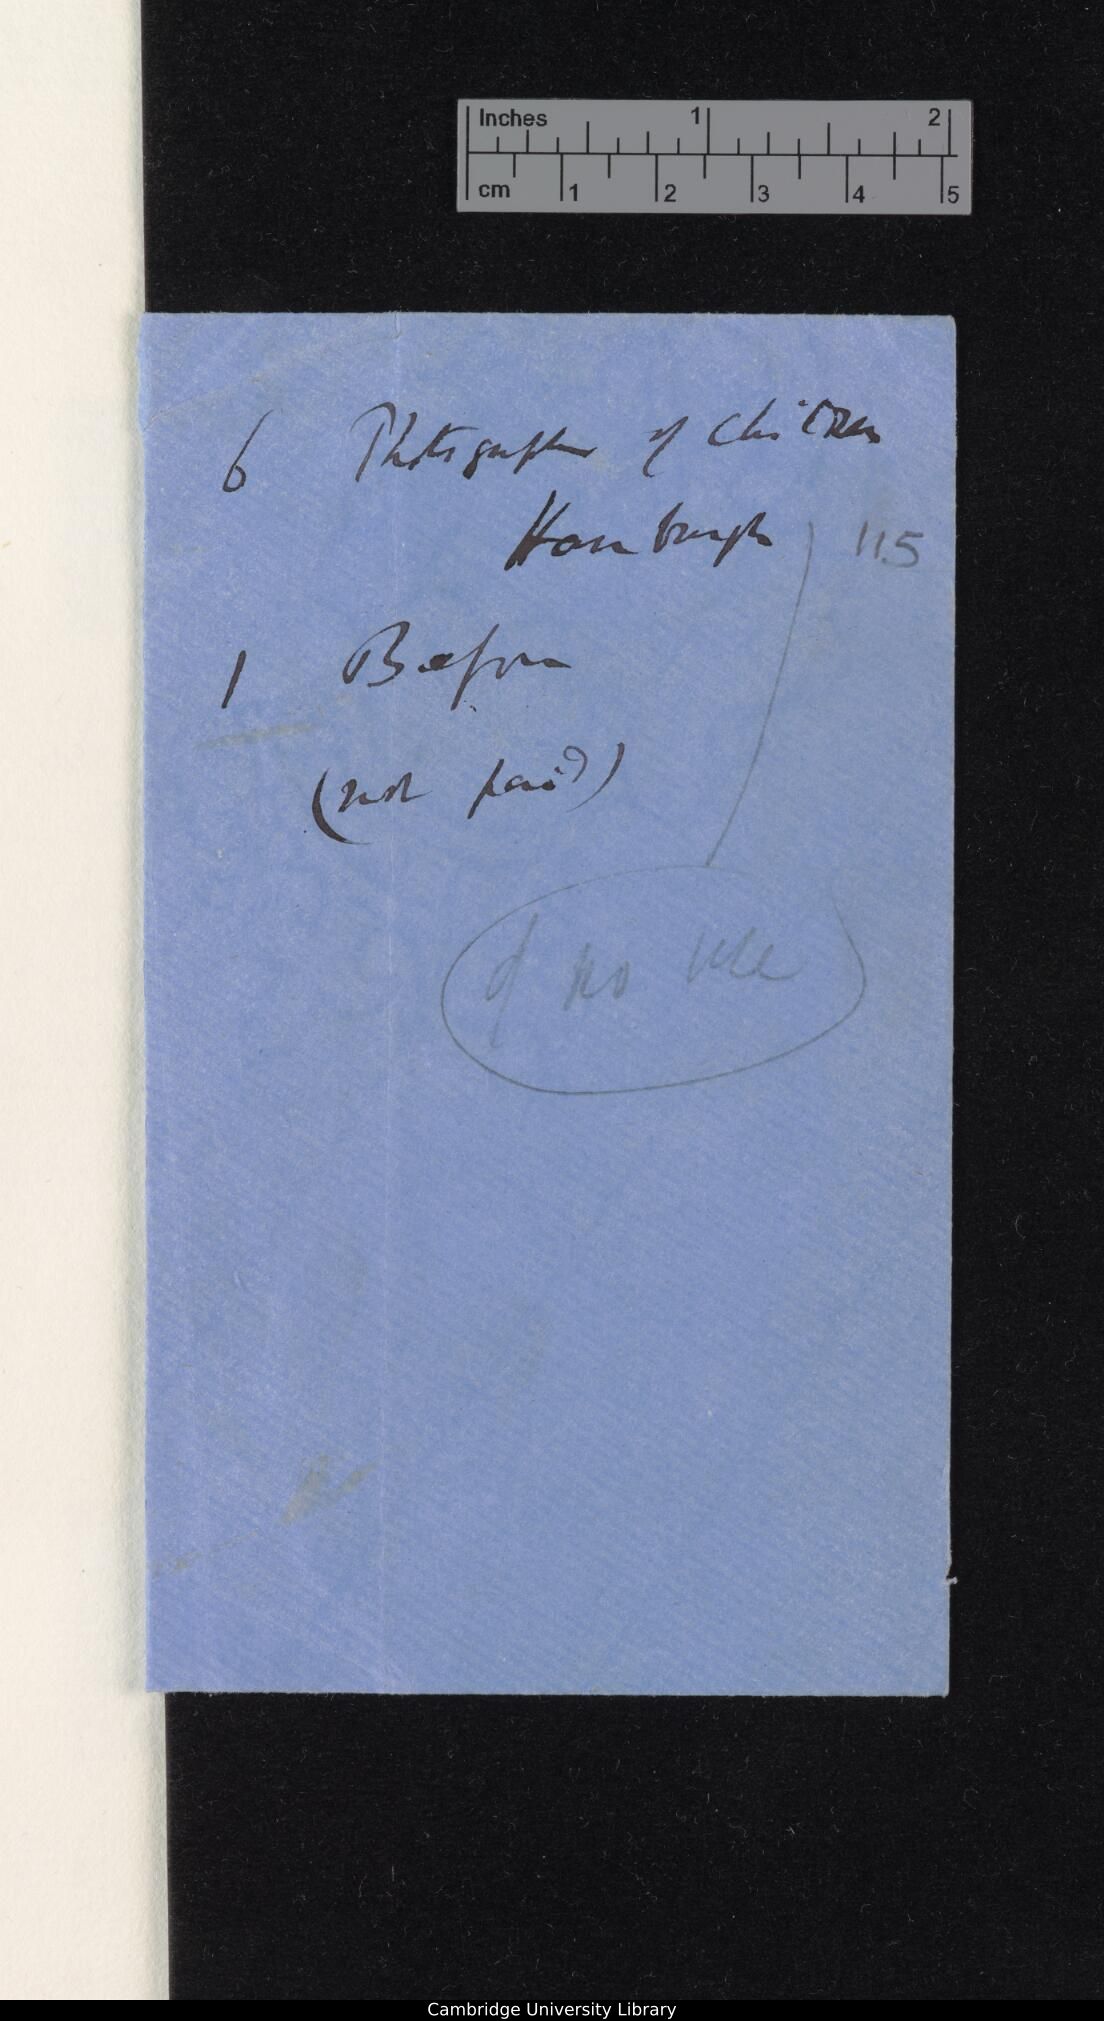 Inches 1 2
cm 1 2 3 4 5
6 Photographs of Children
Hamburgh
115
1
(not paid)
of no use
Cambridge University Library